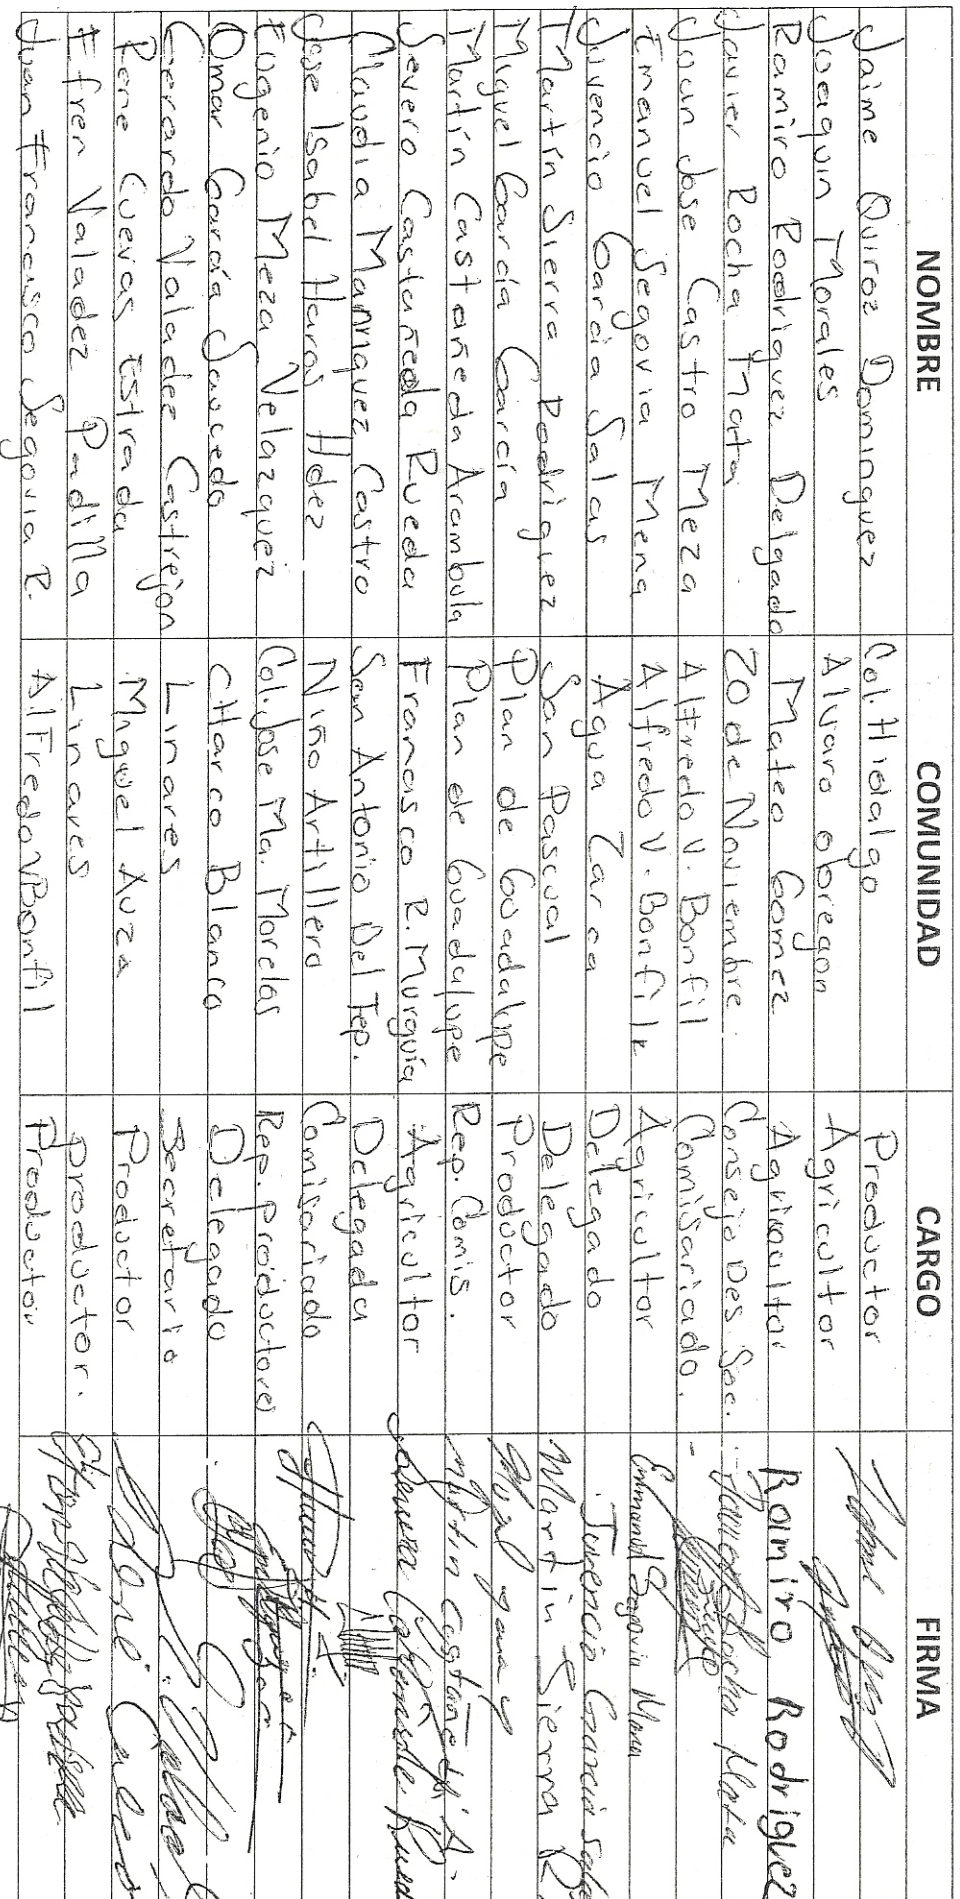 NOMBRE COMUNIDAD CARGO FIRMA
Jaime Quiroz Dominguez Col. Hidalgo Productor
Joaquin Morales Alvaro obregon Agricultor
Ramiro Rodriguez Delgado Mateo Gomez Agricultor Ramiro Rodriguez
Javier Rocha Mata 20 de Noviembre. Consejo Des. Soc. Javier Rocha Mata
Juan Jose Castro Meza Alfredo V. Bonfil Comisariado.
Emanuel Segovia Mena Alfredo V. Bonfil Agricultor Emmanuel Segovia Mena
Juvencio Garcia Salas Agua Zarca Delegado Juvencio Garcia Salas
Martín Sierra Rodriguez San Pascual Delegado Martín Sierra R
Miguel García García Plan de Guadalupe Productor
Martín Castañeda Arambula Plan de Guadalupe Rep. Comis. Martin Castañeda A.
Severo Castañeda Rueda Francisco R. Murguía Agricultor Severo Castañeda Rueda
Claudia Manriquez Castro San Antonio Del Tep. Delegada
Jose Isabel Haros Hdez Niño Artillero Comisariado
Eugenio Meza Velazquez Col. Jose Ma. Morelos Rep. productores
Omar García Saucedo CHarco Blanco Delegado
Gerardo Valadez Castrejon Linares Secretario
Rene Cuevas Estrada Miguel Auza Productor
Efren Valadez Padilla Linares productor.
Juan Francisco Segovia R. AlFredo V Bonfil Productor